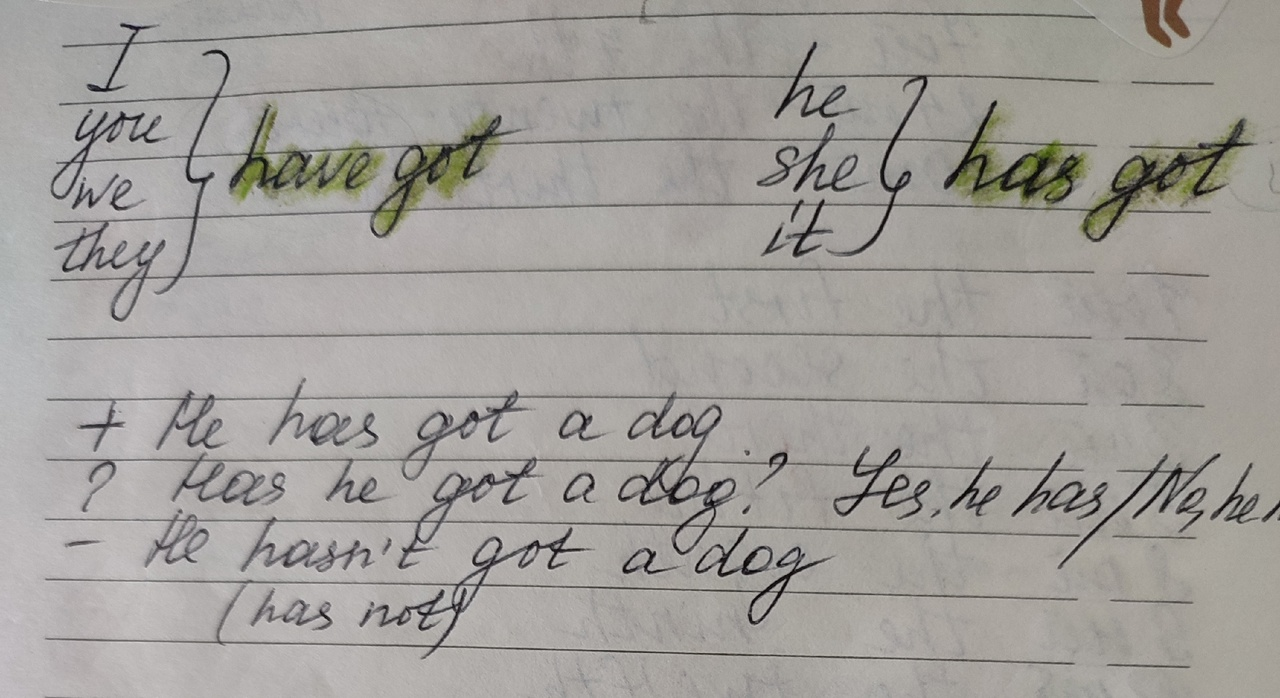 I
you
we
they
have got
he
she
it
has got
+ He has got a dog
? Has he got a dog? Yes, he has/No, he
- He hasn't got a dog
(has not)